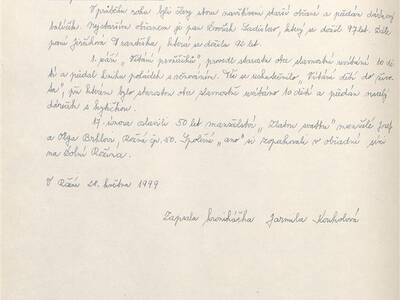 V průběhu roku byli ženy sboru navštíveni starší občané a předán dárkový
balíček. Nejstarším občanem je pan Dvořák Ladislav, který se dožil 97 let. Dále
paní Jirášková Františka, která se dožila 92 let.
1. září „Vítání prvňáčků", provedl starosta obce slavnostní uvítání 10 dě-
tí a předal knihu pohádek s věnováním. Též se uskutečnilo „Vítání dětí do živo-
ta", při kterém bylo starostou obce slavnostně uvítáno 10 dětí a předán malý
dáreček s kytičkou.
17. února oslavili 50 let manželství „Zlatou svatbu" manželé Josef
a Olga Brhlovi, Rožná čp. 50. Společné „ano" si zopakovali v obřadní síni
na Dolní Rožínce.
V Rožné 28. května 1999
Zapsala kronikářka Jarmila Koukolová